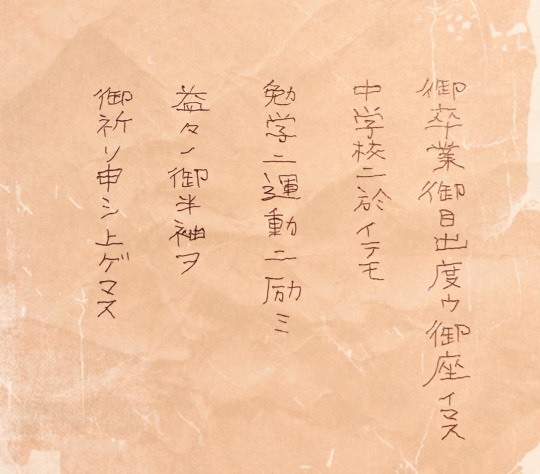 御卒業御目出度ウ御座イマス
中学校ニ於イテモ
勉学ニ運動ニ励ミ
益々ノ御半袖ヲ
御祈リ申シ上ゲマス